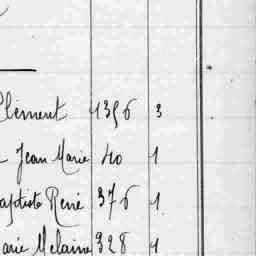 Clément 1396 3
Jean Marie 40 1
aptiste René 376 1
arie Melaine 328 1